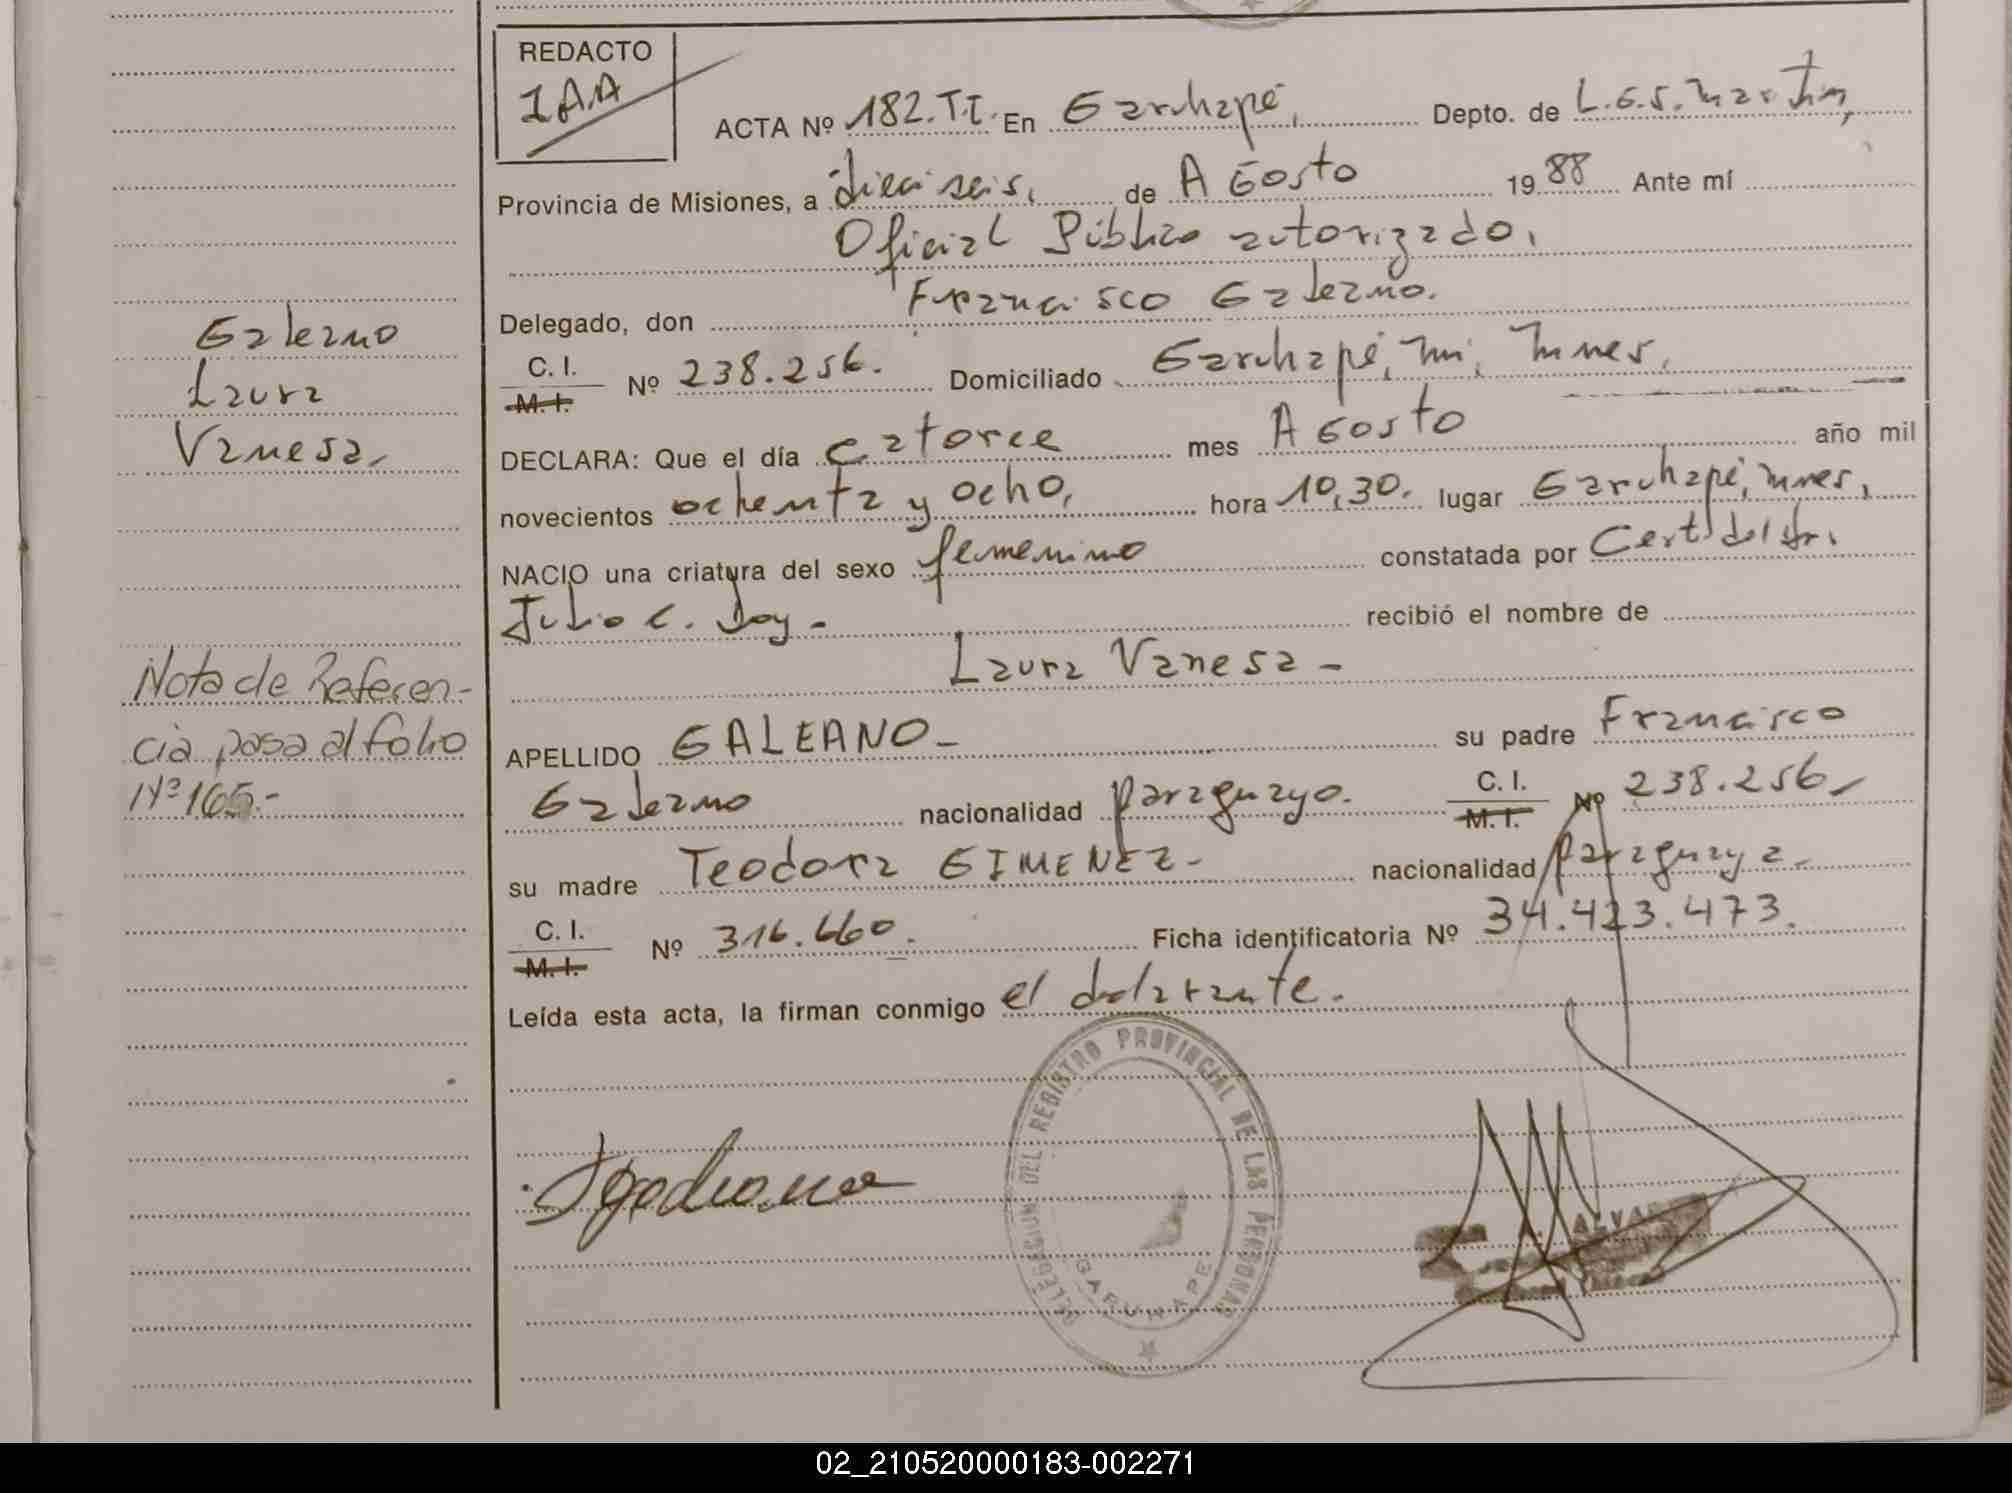 REDACTO
I.A.A
ACTA Nº 182.T.I. En Garuhapé, Depto. de L.G.S. Martin,
Provincia de Misiones, a dieciseis, de AGosto 1988 Ante mí
Oficial Público autorizado,
Delegado, don Francisco Galeano.
C. I.
M. I.
Nº 238.256. Domiciliado Garuhapé, Mnes,
DECLARA: Que el día catorce mes AGosto año mil
novecientos ochenta y ocho, hora 10,30. lugar Garuhapé, Mnes,
NACIO una criatura del sexo femenino constatada por Cert. del Dr.
Julio C. recibió el nombre de
Laura Vanesa -
APELLIDO GALEANO - su padre Francisco
Galeano nacionalidad paraguayo. C. I. M. I. Nº 238.256
su madre Teodora GIMENEZ - nacionalidad paraguaya
C. I.
M. I.
Nº 316.660. Ficha identificatoria Nº 34.423.473.
Leída esta acta, la firman conmigo el declarante.
Galeano
Laura
Vanesa
Nota de Referen-
cia pasa al folio
Nº 165.-
DELEGACION DEL REGISTRO PROVINCIAL DE LAS PERSONAS
GARUHAPE
02_210520000183-002271